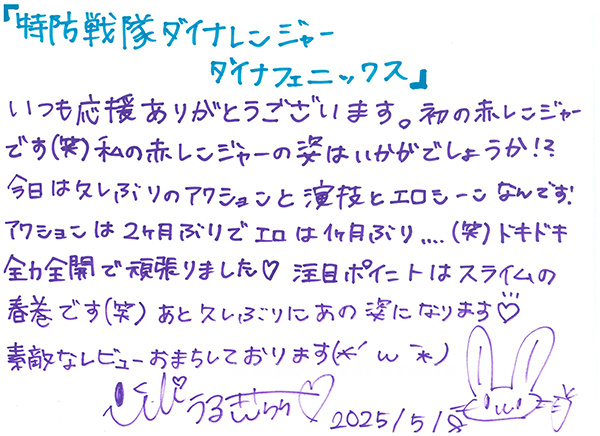 『特防戦隊ダイナレンジャー
ダイナフェニックス』
いつも応援ありがとうございます。初の赤レンジャー
です(笑)私の赤レンジャーの姿はいかがでしょうか!?
今日は久しぶりのアクションと演技とエロシーンなんです!
アクションは2ヶ月ぶりでエロは1ヶ月ぶり....(笑)ドキドキ
全力全開で頑張りました♡ 注目ポイントはスライムの
春巻です(笑) あと久しぶりにあの姿になります♡
素敵なレビューおまちしております(*´ω`*)
うるきらら♡ 2025/5/8